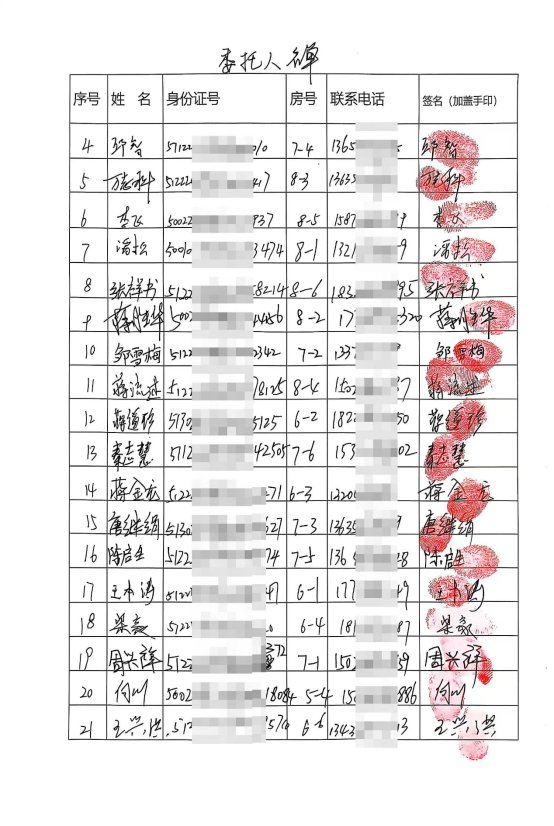 委托人名单
序号 姓 名 身份证号 房号 联系电话 签名（加盖手印）
4 邓智 5122 010 7-4 1365 5 邓智
5 51222 417 8-3 13635
6 李飞 50022 937 8-5 1587 9 李飞
7 潘松 50010 3474 8-1 1321 9 潘松
8 张祥书 5122 8214 8-6 183 95 张祥书
9 500 4456 8-2 17 320
10 邹雪梅 5122 2342 7-2 1337 邹雪梅
11 蒋流进 5122 78125 8-4 1502 37 蒋流进
12 蒋道珍 5130 5125 6-2 182 50 蒋道珍
13 秦志慧 5112 42505 7-6 153 02 秦志慧
14 蒋金宏 5122 271 6-3 1320 蒋金宏
15 唐继绢 5130 627 7-3 13635 9 唐继绢
16 陈启生 5122 74 7-5 136 28 陈启生
17 王本涛 512 47 6-1 177 49 王本涛
18 梁毅 5122 0 6-4 181 87 梁毅
19 周兴祥 5122 372 7-1 150 59 周兴祥
20 何川 5002 1808 5-4 15 886 何川
21 王兴洪 512 570 6-6 1343 13 王兴洪